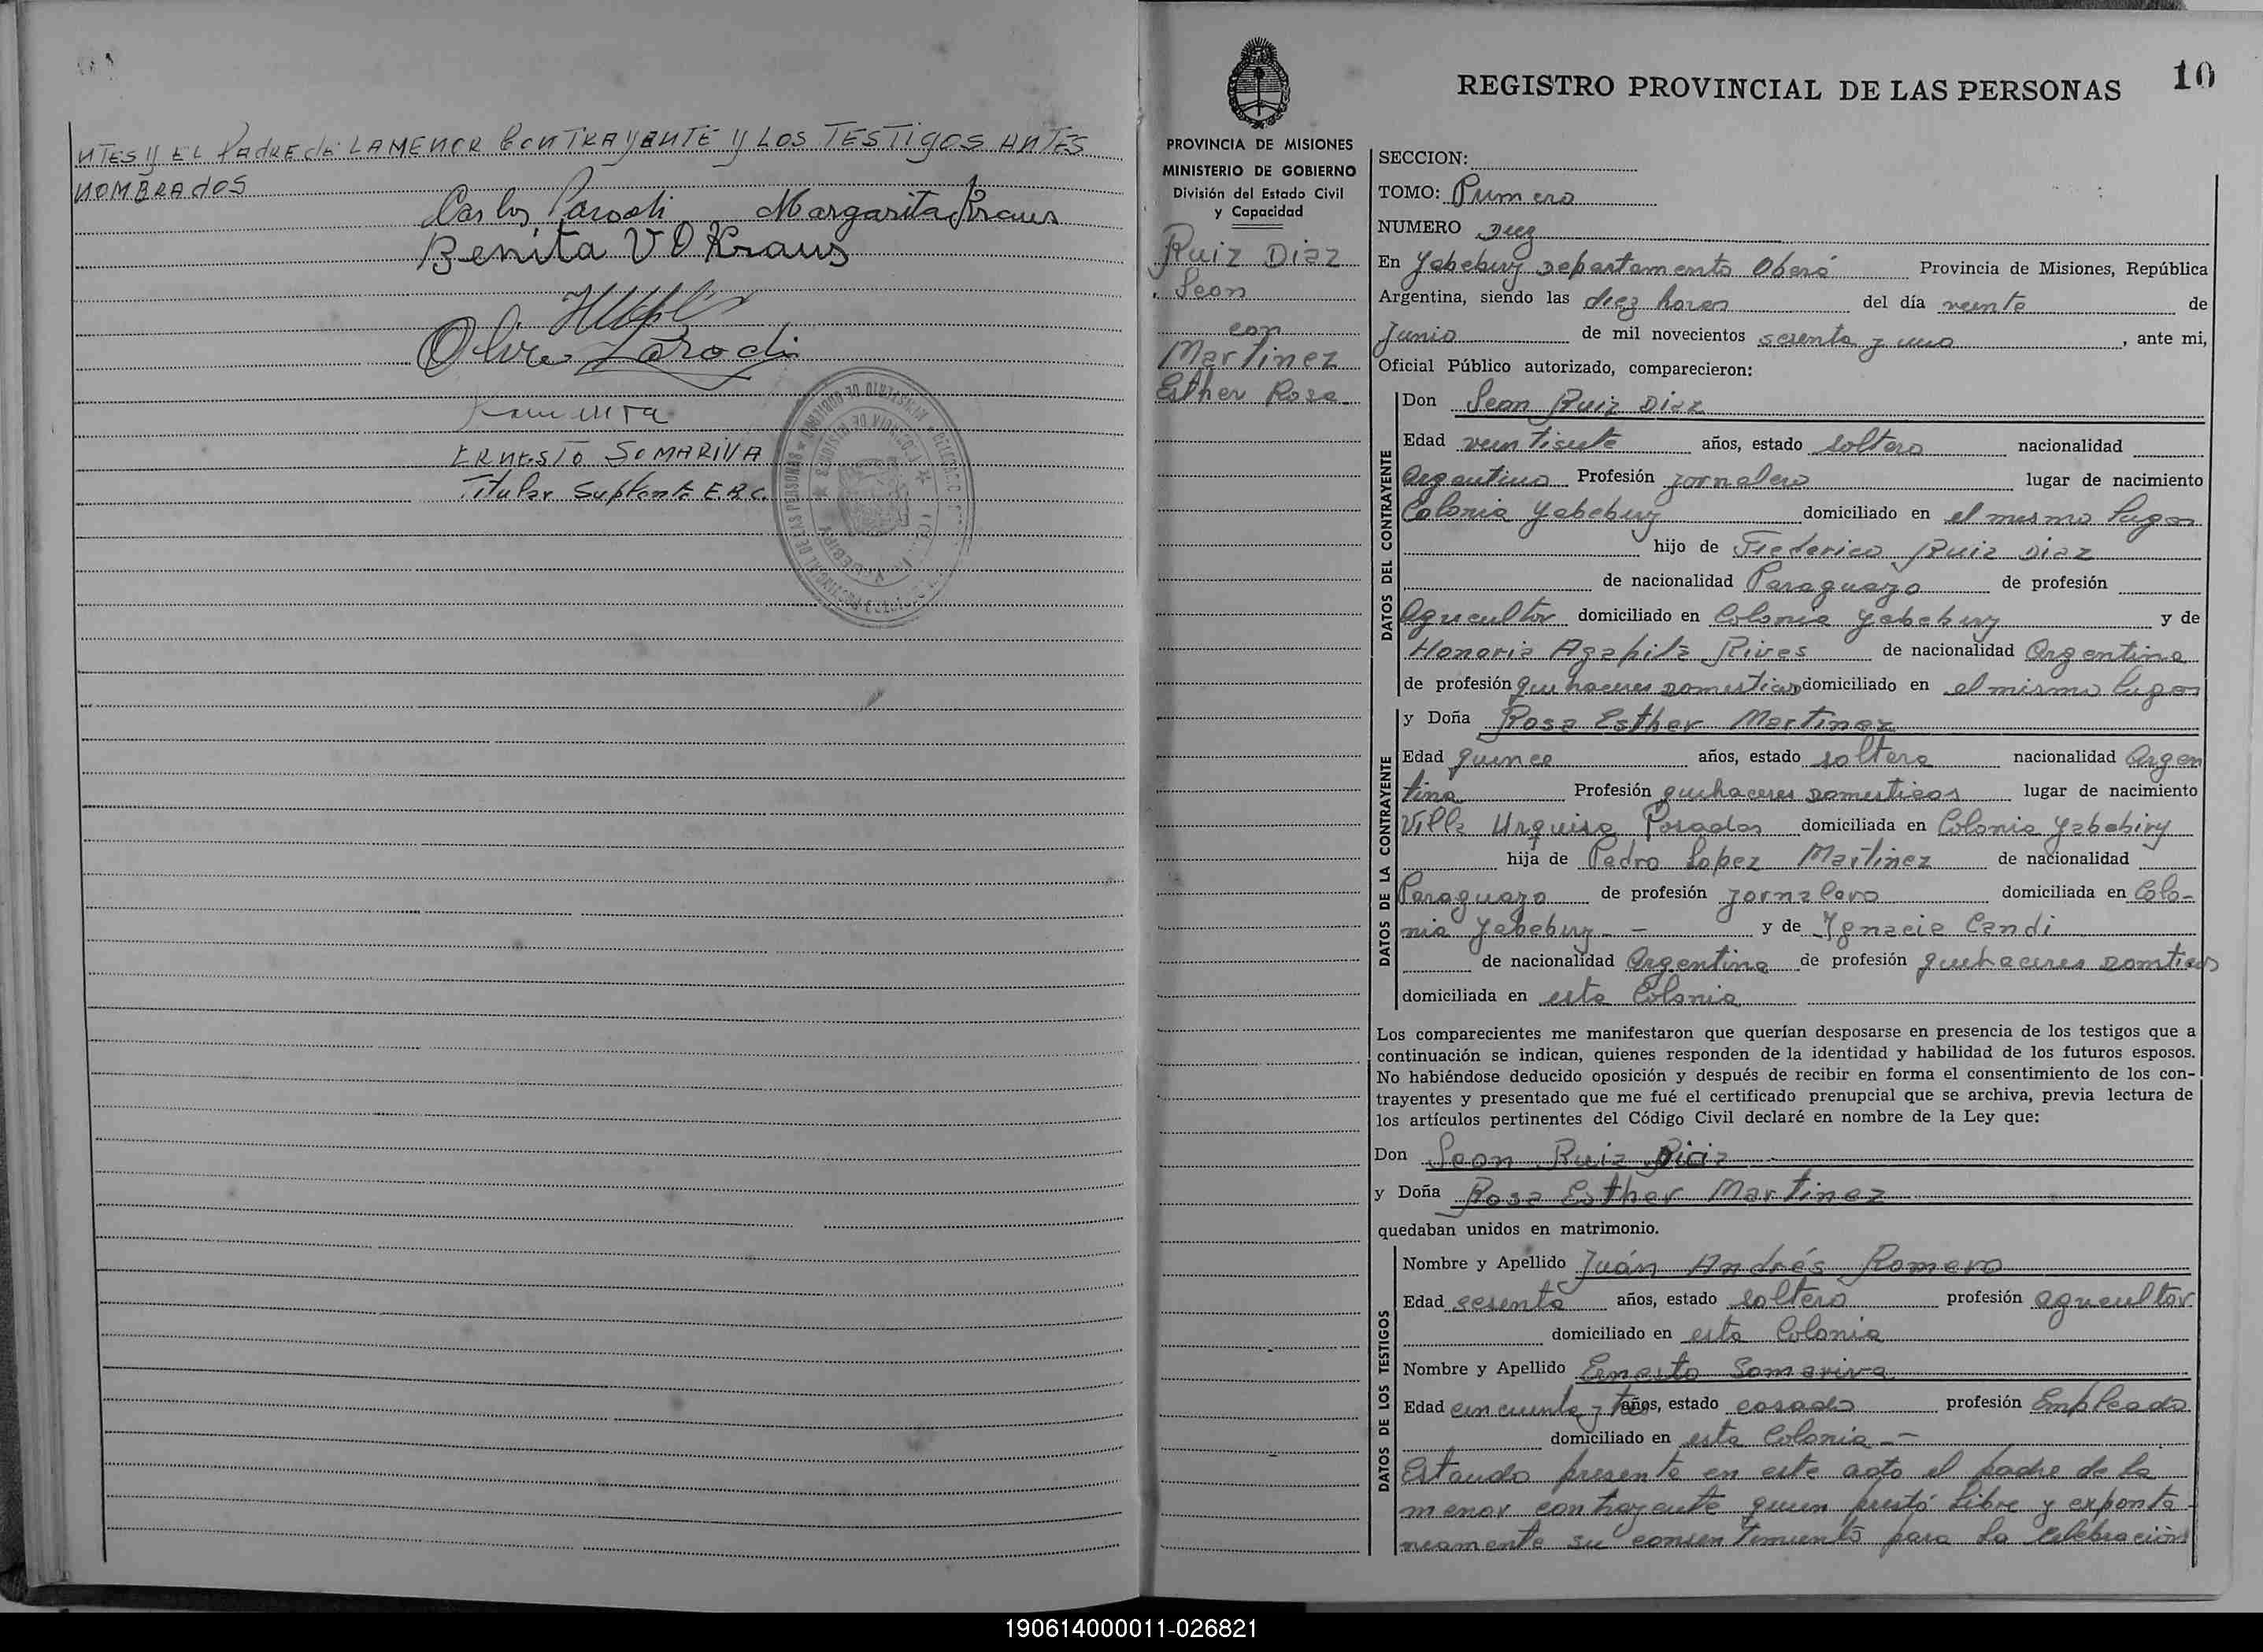 NTES Y EL PADRE de LA MENOR CONTRAYENTE Y LOS TESTIGOS ANTES
NOMBRADOS
Carlos Parodi Margarita Kraus
Benita V D Kraus
Parodi
ERNESTO SOMARIVA
Titular Suplente E.R.C.
10
REGISTRO PROVINCIAL DE LAS PERSONAS
PROVINCIA DE MISIONES
MINISTERIO DE GOBIERNO
División del Estado Civil
y Capacidad
Ruiz Diaz
Leon
con
Martinez
Esther Rosa
SECCION:
TOMO: Primero
NUMERO Diez
En Yabebiry Departamento Oberá Provincia de Misiones, República
Argentina, siendo las diez horas del día veinte de
Junio de mil novecientos sesenta y uno, ante mi,
Oficial Público autorizado, comparecieron:
DATOS DEL CONTRAYENTE
Don Leon Ruiz Diaz
Edad veintisiete años, estado soltero nacionalidad
Argentino Profesión jornalero lugar de nacimiento
Colonia Yabebiry domiciliado en el mismo lugar
hijo de Federico Ruiz Diaz
de nacionalidad Paraguayo de profesión
Agricultor domiciliado en Colonia Yabebiry y de
Honoria Agapita Rives de nacionalidad Argentina
de profesión quehaceres domesticos domiciliado en el mismo lugar
DATOS DE LA CONTRAYENTE
y Doña Rosa Esther Martinez
Edad quince años, estado soltera nacionalidad Argen
tina Profesión quehaceres domesticos lugar de nacimiento
Villa Urquiza Posadas domiciliada en Colonia Yabebiry
hija de Pedro Lopez Martinez de nacionalidad
Paraguayo de profesión jornalero domiciliada en Colo-
nia Yabebiry - - y de Ygnacia Candi
de nacionalidad Argentina de profesión quehaceres domticos
domiciliada en esta Colonia
Los comparecientes me manifestaron que querían desposarse en presencia de los testigos que a
continuación se indican, quienes responden de la identidad y habilidad de los futuros esposos.
No habiéndose deducido oposición y después de recibir en forma el consentimiento de los con-
trayentes y presentado que me fué el certificado prenupcial que se archiva, previa lectura de
los artículos pertinentes del Código Civil declaré en nombre de la Ley que:
Don Leon Ruiz Diaz
y Doña Rosa Esther Martinez
quedaban unidos en matrimonio.
DATOS DE LOS TESTIGOS
Nombre y Apellido Juán Andrés Romero
Edad sesenta años, estado soltero profesión agricultor
domiciliado en esta Colonia
Nombre y Apellido Ernesto Somariva
Edad cincuenta y tres años, estado casado profesión Empleado
domiciliado en esta Colonia --
Estando presente en este acto el padre de la
menor contrayente quien prestó libre y exponta-
neamente su consentimiento para la celebración
190614000011-026821